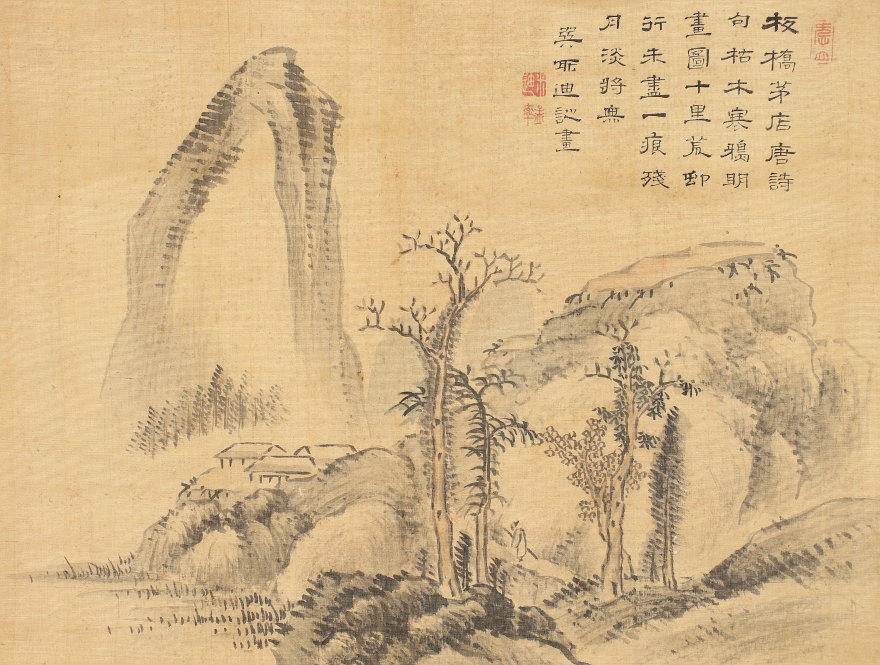 板橋茅店唐詩
句枯木寒鴉明
畫圖十里荒邨
行未盡一痕殘
月淡將無
吳 迪 畫